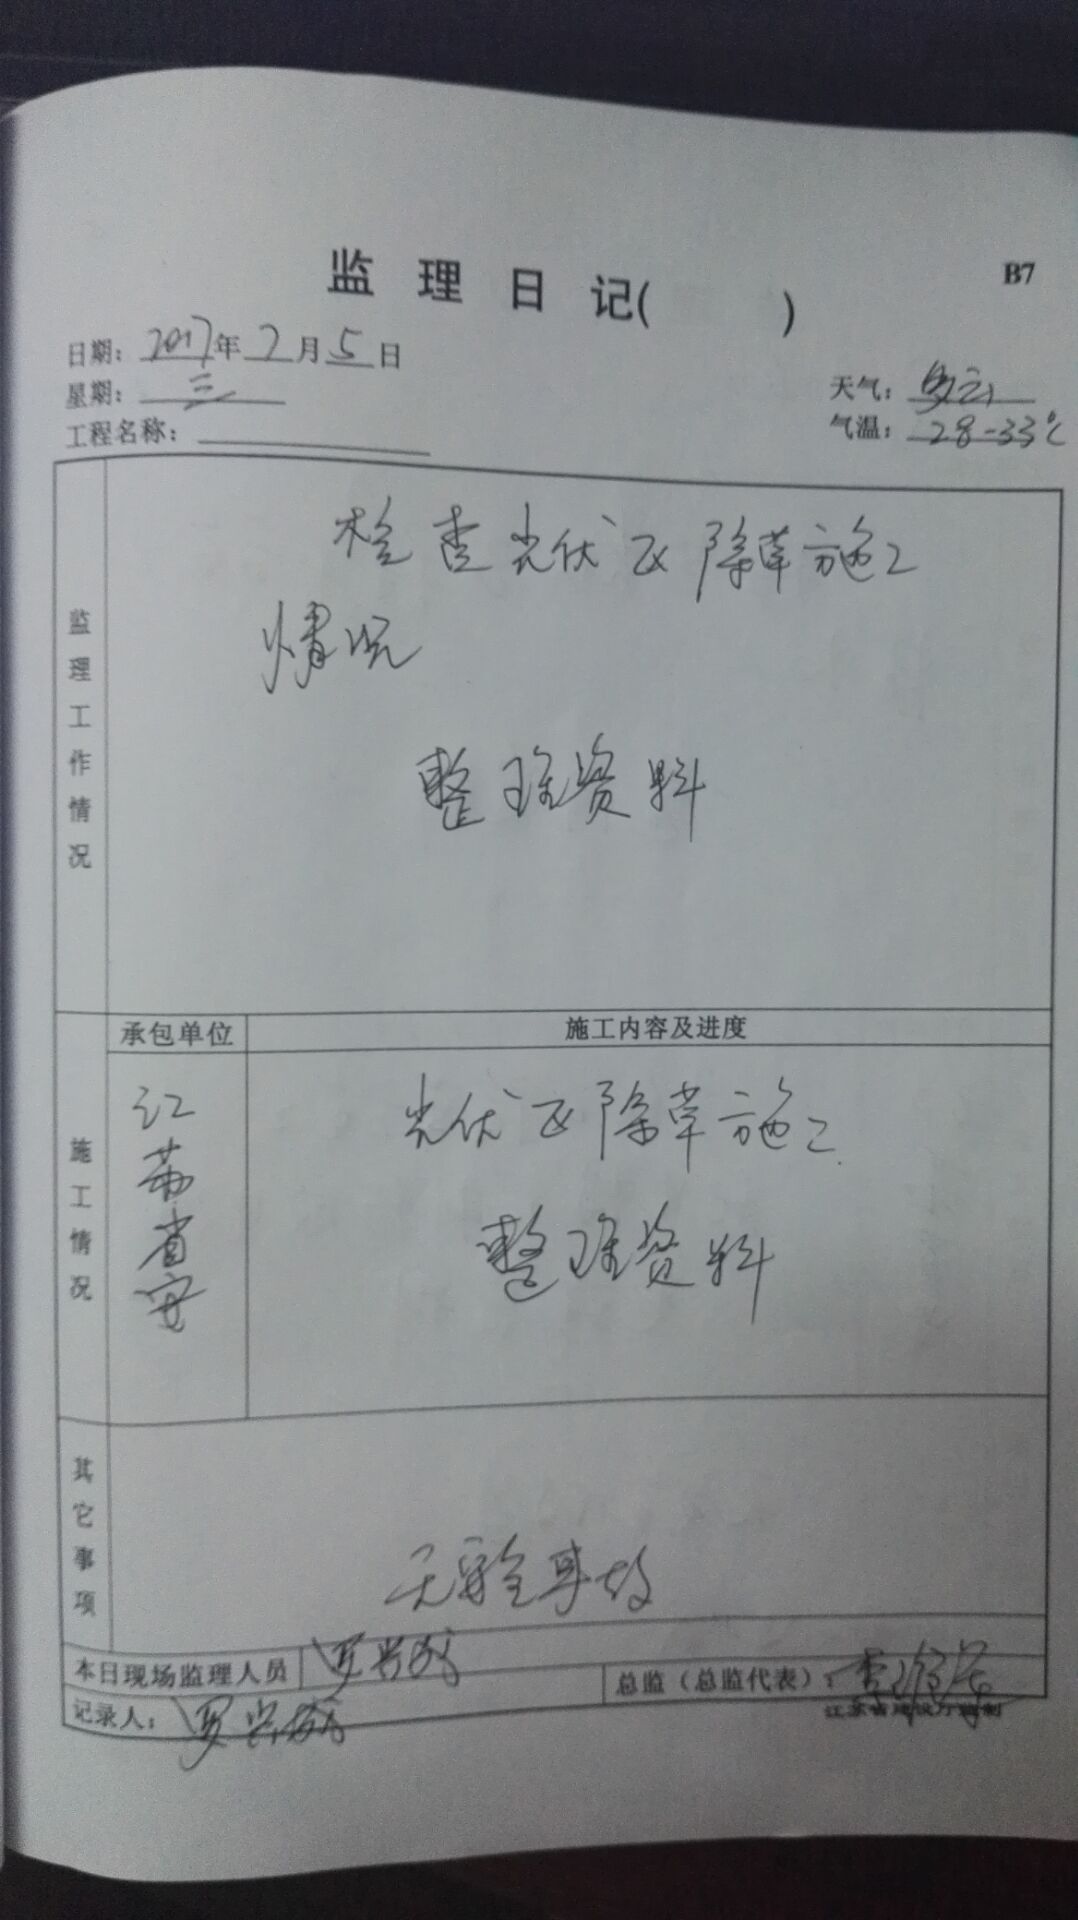 监理日记( )
B7
日期: 2017年7月5日
星期: 三
天气: 多云
工程名称:
气温: 28-33℃
监理工作情况
检查光伏区除草施工
情况
整理资料
承包单位
施工内容及进度
施工情况
江苏省安
光伏区除草施工
整理资料
其它事项
无安全事故
本日现场监理人员
总监（总监代表）:
记录人:
江苏省建设厅监制